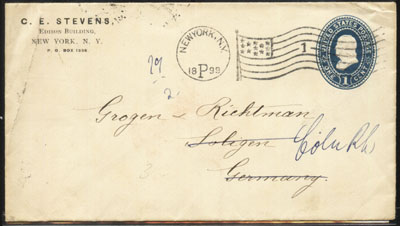 C. E. STEVENS,
EDISON BUILDING,
NEW YORK, N. Y.
P. O. BOX 1396
NEW YORK, N.Y.
18 P 99
1
UNITED STATES POSTAGE
ONE CENT
1
2
Grogen - Richtman
Soligen
Cöln Rh
Germany.